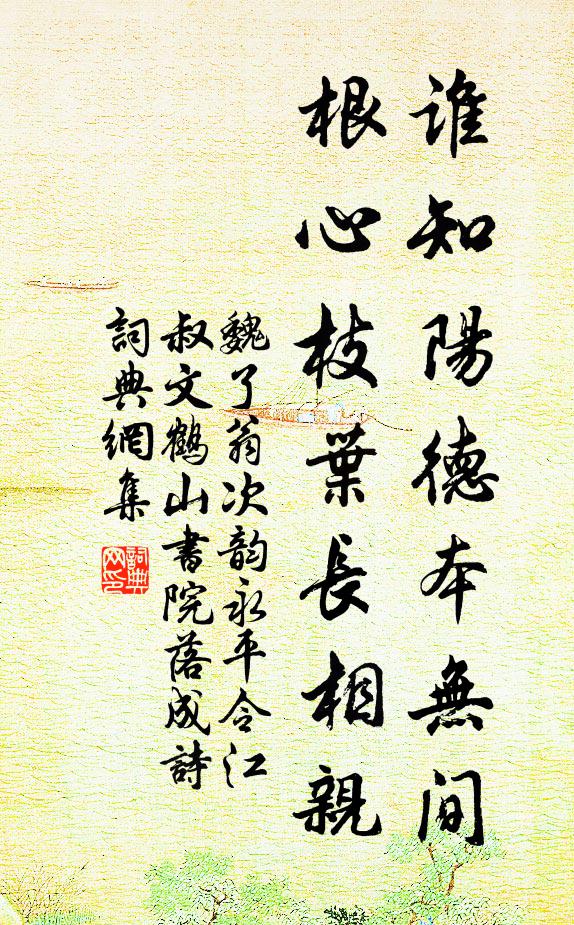 谁知陽德本無间
根心枝葉長相親
魏了翁次韵永平令江
叔文鶴山書院落成詩
詞典網集
詞典网印